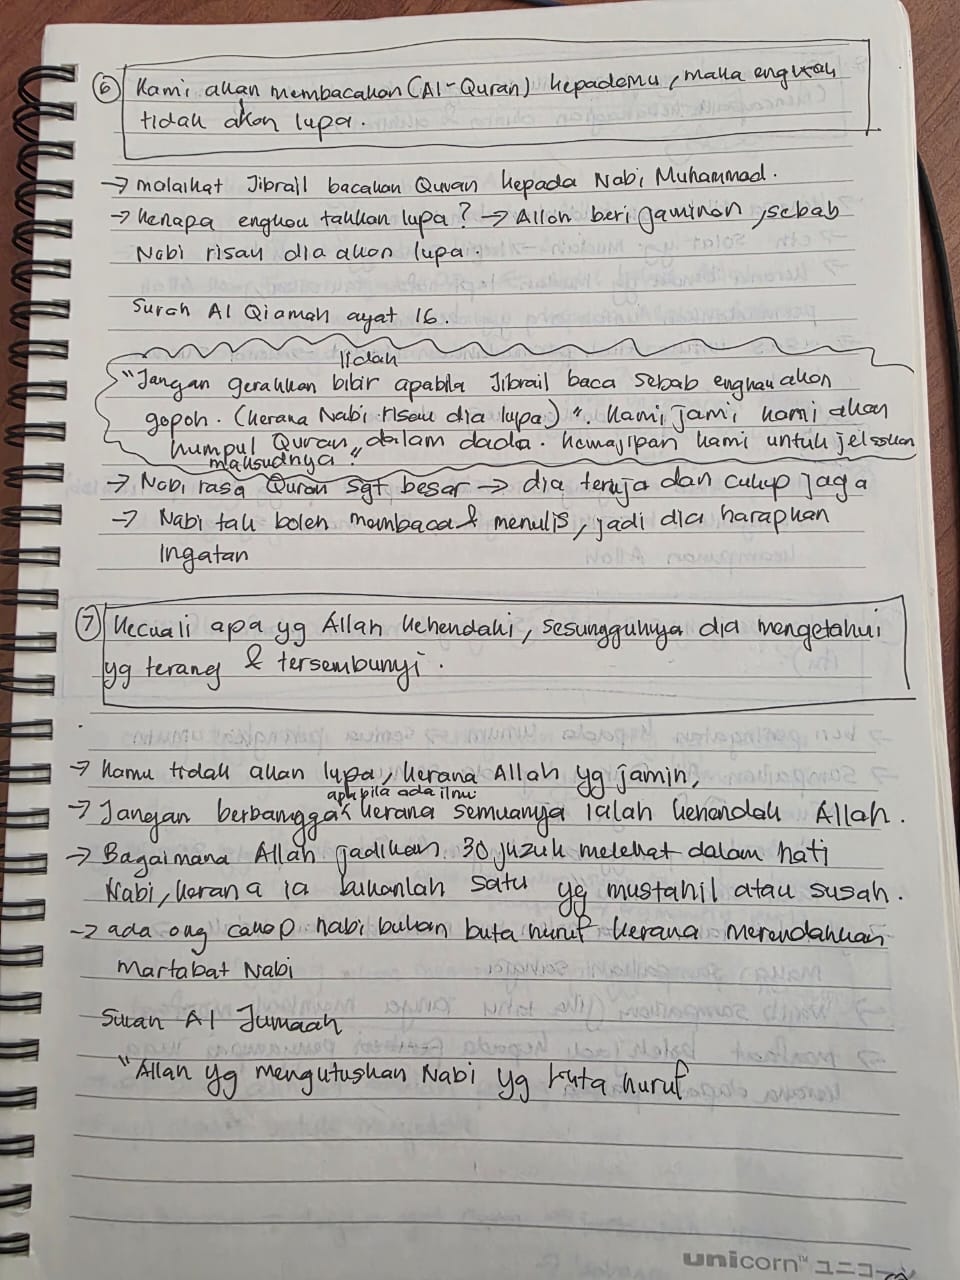 ⑥ Kami akan membacakan (Al-Quran) kepadamu, maka engkau
tidak akan lupa.
→ malaikat Jibrail bacakan Quran kepada Nabi Muhammad.
→ kenapa engkau takkan lupa? → Allah beri jaminan, sebab
Nabi risau dia akan lupa.
Surah Al Qiamah ayat 16.
lidah
"Jangan gerakkan bibir apabila Jibrail baca sebab engkau akan
gopoh. (kerana Nabi risau dia lupa)". Kami jami kami akan
kumpul Quran dalam dada. Kewajipan kami untuk jelaskan
maksudnya."
→ Nabi rasa Quran sgt besar → dia teruja dan cukup jaga
→ Nabi tak boleh membaca & menulis, jadi dia harapkan
ingatan
⑦ Kecuali apa yg Allah kehendaki, sesungguhnya dia mengetahui
yg terang & tersembunyi.
→ kamu tidak akan lupa, kerana Allah yg jamin,
apabila ada ilmu
→ Jangan berbangga kerana semuanya ialah kehendak Allah.
→ Bagaimana Allah jadikan 30 juzuk melekat dalam hati
Nabi, kerana ia bukanlah satu yg mustahil atau susah.
→ ada org cakap nabi bukan buta huruf kerana merendahkan
martabat Nabi
Surah Al Jumaah
"Allah yg mengutuskan Nabi yg buta huruf
unicorn™ ユニコーン